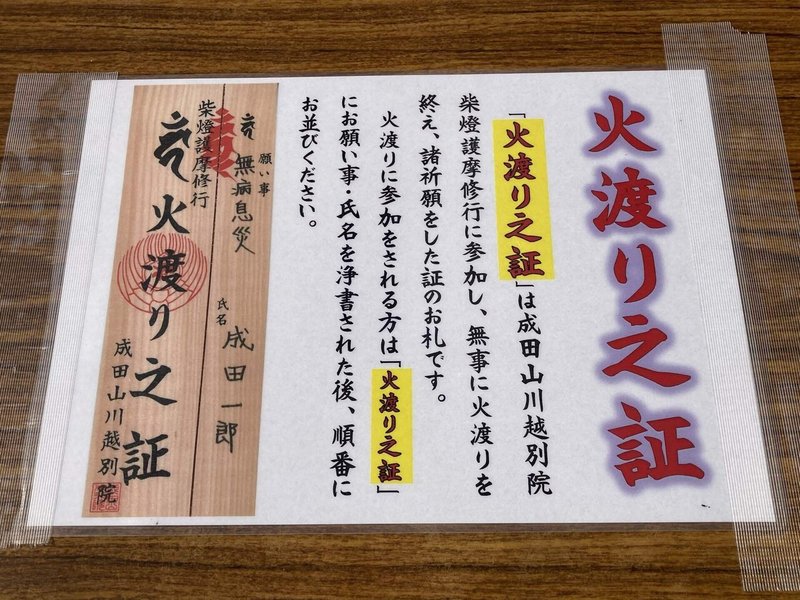 火渡り之証
「火渡り之証」は成田山川越別院
柴燈護摩修行に参加し、無事に火渡りを
終え、諸祈願をした証のお札です。
火渡りに参加をされる方は「火渡り之証」
にお願い事・氏名を浄書された後、順番に
お並びください。
願い事
無病息災
氏名
成田一郎
柴燈護摩修行
火渡り之証
成田山川越別院